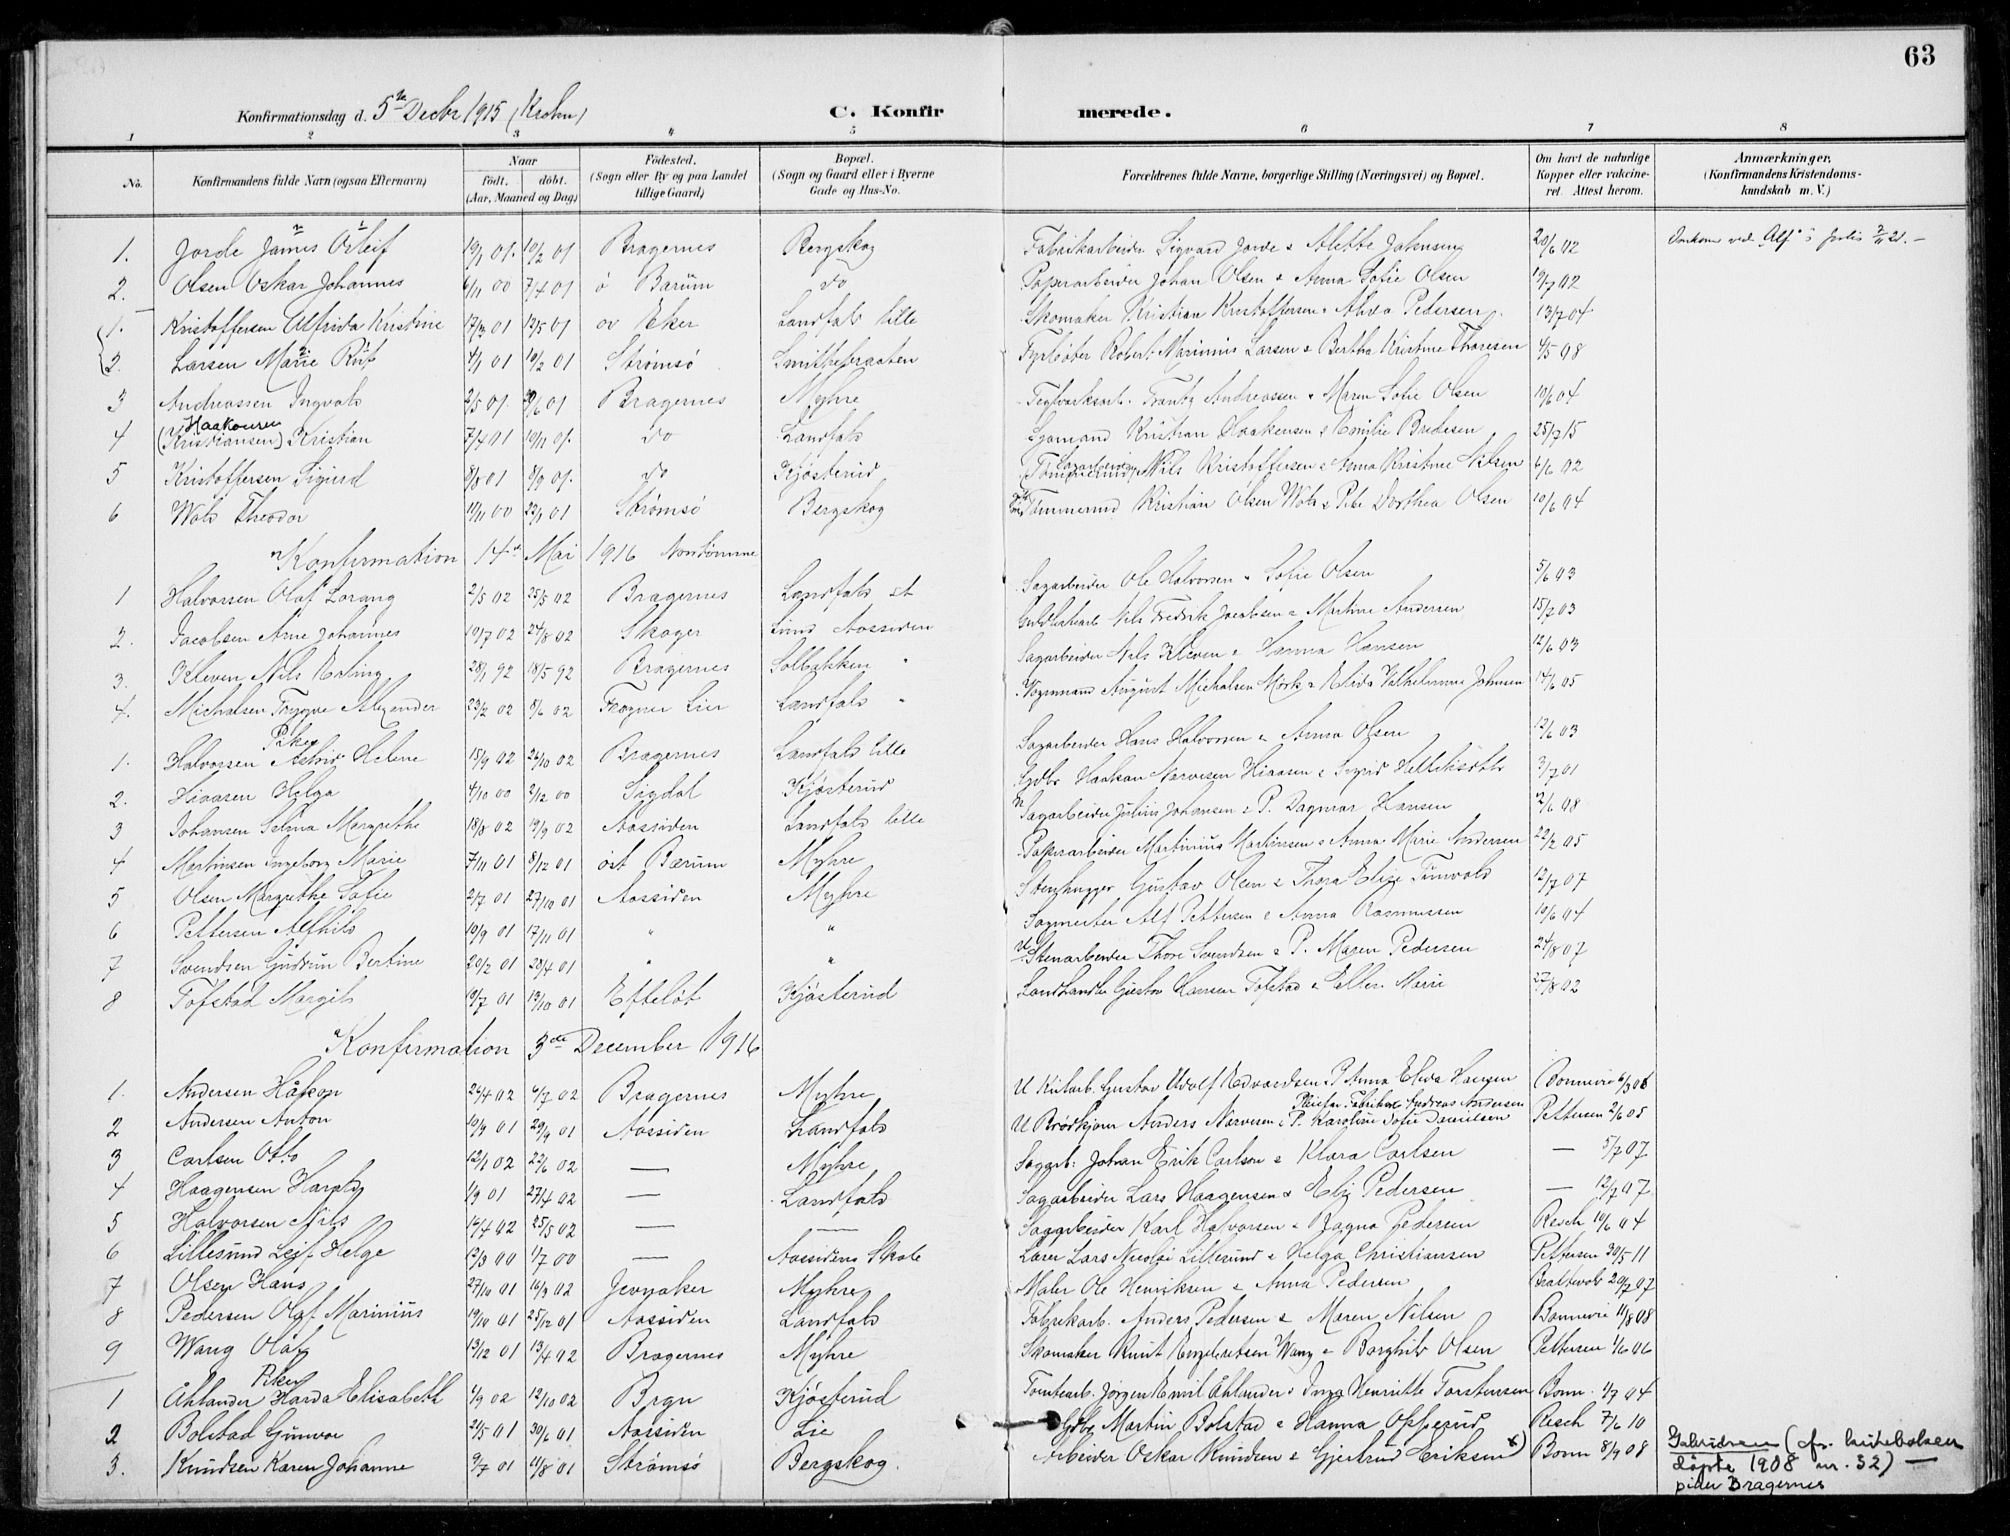 63
Konfirmationsdag d. 5te Decbr 1915 (Krohn)
C. Konfirmerede.
1 2 3 4 5 6 7 8
No.
Konfirmandens fulde Navn (ogsaa Efternavn)
Naar
födt. döbt.
(Aar, Maaned og Dag)
Födested.
(Sogn eller By og paa Landet
tillige Gaard)
Bopæl.
(Sogn og Gaard eller i Byerne
Gade og Hus-No.
Forældrenes fulde Navne, borgerlige Stilling (Næringsvei) og Bopæl.
Om havt de naturlige
Kopper eller vakcine-
ret. Attest herom.
Anmærkninger.
(Konfirmandens Kristendoms-
kundskab m. V.)
1. Jorde James Osleif 19/1 01. 10/2 01 Bragernes Bergskog Fabrikarbeider Sigvard Jorde & Alette Johnsen 20/6 02 Omkom ved "Alf" i
2. Olsen Oskar Johannes 6/11 00 7/4 01 ö Bærum do Papirarbeider Johan Olsen & Anna Sofie Olsen 19/7 02
1. Kristoffersen Alfrida Kristine 17/3 01 12/5 01 ov Eker Landfald lille Skomaker Kristian Kristoffersen & Pedersen 13/7 04
2. Larsen Marie Rut 4/1 01 10/2 01 Strømsö Smithebergaten Fyrbøter Robert Marinius Larsen & Bertha Kristine Thoresen 4/5 08
3 Andreassen Ingvald 2/5 01. /6 01 Bragernes Myhre Teglverksarb. Frantz Andreassen & Maren Sofie Olsen 10/6 04
4 Haakonsen (Kristiansen) Kristian 7/4 01 10/11 01. do Landfald Sjømand Kristian Haakensen & Emilie Bredesen 25/7 15
5 Kristoffersen Sigurd 8/8 01 8/9 01. do Kjøsterud Sagarbeider (Tömmermd) Nils Kristoffersen & Anna Kristine Nilsen 6/6 02
6 Wold Theodor 11/11 00 22/1 01 Strømsö Bergskog Tömmermd Kristian Olsen Wold & Dorthea Olsen 10/6 04
Konfirmation 14de Mai 1916 Nordtømme
1 Halvorsen Olaf Lorang 2/5 02 25/5 02 Bragernes Landfald st Sagarbeider Ole Halvorsen & Sofie Olsen 5/6 03
2. Jacobsen Arne Johannes 10/7 02 24/8 02 Skoger Lund Aassiden Nils Fredrik Jacobsen & Martine Andersen 15/7 03
3. Kleven Nils Erling 28/1 92 18/5 92 Bragernes Solbakken " Sagarbeider Nils Kleven & Hanna Hansen 12/6 03
4. Michalsen Trygve Alexander 23/2 02 8/6 02 Frogner Lier Landfald " Vognmand August Michalsen Mørk & Elida Vilhelmine Johnsen 14/6 05
Piker
1. Halvorsen Astrid Helene 15/9 02 26/10 02 Bragernes Landfald lille Sagarbeider Hans Halvorsen & Anna Olsen 12/6 03
2. Hiaasen Helga 4/10 00 2/12 00 Sigdal Kjøsterud Gdbr Haakon Narvesen Hiaasen & Sigrid 3/7 01
3 Johansen Selma Margrethe 18/8 02 19/9 02 Aassiden Landfald lille Sagarbeider Julius Johansen & P. Dagmar Hansen 2/6 08
4 Martinsen Ingeborg Marie 7/11 01 8/12 01 öst Bærum Myhre Papirarbeider Martinius Martinsen & Anna Marie Andersen 22/2 05
5 Olsen Margrethe Sofie 2/7 01 27/10 01 Aassiden Myhre Stenhugger Gustav Olsen & Thora Elise Tunvold 12/7 07
6 Pettersen Alfhild 10/9 01 17/11 01 " " Sagmester Alf Pettersen & Anna Rasmussen 10/6 04
7 Svendsen Gudrun Bertine 20/2 01 28/4 01 " " Stenarbeider Thore Svendsen & P. Maren Pedersen 24/8 07
8 Tofstad Margit 19/7 01 13/10 01 Efteløt Kjøsterud Landhandler Gustav Hansen Tofstad & Ellen Marie 27/8 02
Konfirmation 3de December 1916
1. Andersen Håkon 24/4 02 6/7 02 Bragernes Myhre U Kulearb. Gustav Adolf Edvardsen & P. Anna Elida Hansen Bonnevie 6/3 06
2 Andersen Anton 10/9 01 29/9 01 Aassiden Landfald U Brødkjører Anders Narvesen & P. Karoline Sofie Danielsen Pettersen 2/6 05
3 Carlsen Otto 12/1 02 22/6 02 — Myhre Sagarb: Johan Erik Carlsen & Klara Carlsen — 5/7 07
4 Haagensen Harald 1/9 01 27/4 02 — Landfald Sagarbeider Lars Haagensen & Eliz Pedersen — 12/7 07
5 Halvorsen Nils 14/4 02 25/5 02 — — Sagarbeider Karl Halvorsen & Ragna Pedersen Resch 10/6 04
6 Lillesund Leif Helge 13/3 00 1/7 00 — Aassidens Skole Lærer Lars Nicolai Lillesund & Helga Christiansen Pettersen 30/5 11
7 Olsen Hans 27/10 01 16/3 02 Jevnaker Myhre Maler Ole Henriksen & Anna Pedersen Brattvold 20/7 07
8 Pedersen Olaf Marinius 19/10 01 25/12 01 Aassiden Landfald Fabrikarb. Anders Pedersen & Maren Nilsen Bonnevie 11/8 08
9 Wang Olaf 13/12 01 13/4 02 Bragernes Myhre Skomaker Knut Engebretsen Wang & Borghild Olsen Pettersen 1/6 06
Piker
1 Åhlander Harda Elisabeth 1/9 02 12/10 02 Brgn Kjøsterud Tomtearb. Jørgen Emil Åhlander & Inga Henriette Torstensen Bonn. 1/7 04
2 Bolstad Gunvor 21/5 01 30/6 01 Aassiden Lie Gdbr Martin Bolstad & Hanna Opperud Resch 7/6 10
3. Knudsen Karen Johanne 9/7 01 11/8 01 Strømsö Bergskog. Arbeider Oskar Knudsen & Gjertrud Eriksen x) Bonn 8/9 08 Gabrielsen (cfr. kirkeboken
döpte 1908 nr. 32) —
Bragernes